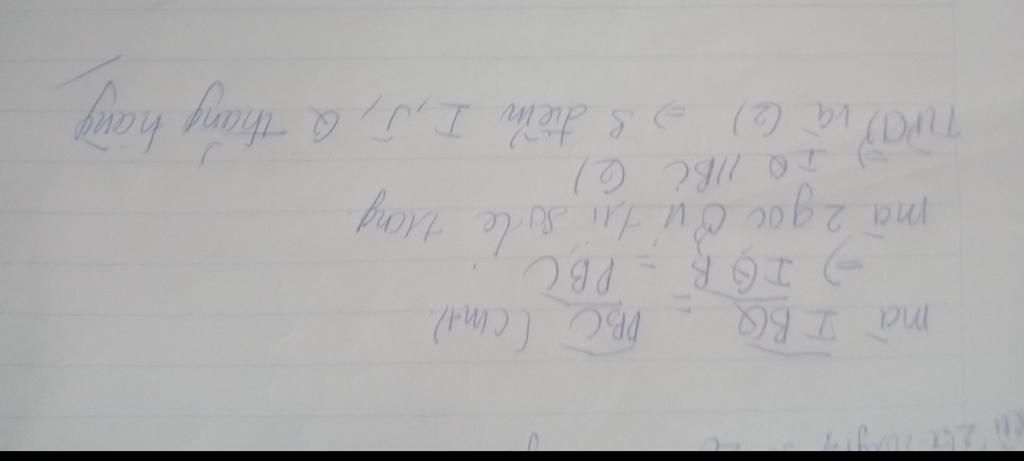 mà IBQ = PBC (cmt).
=) IQB = PBC
mà 2 góc ở vị trí so le trong
=) IQ // BC (2)
Từ (1) và (2) => 3 điểm I, J, Q thẳng hàng